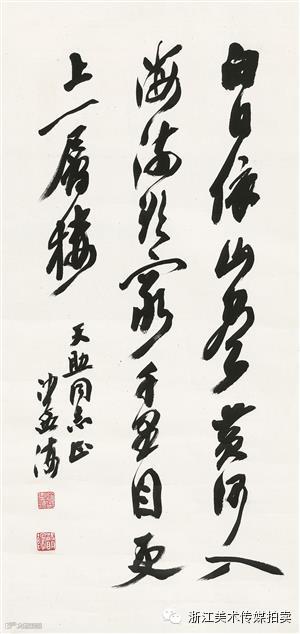 白日依山盡黃河入
海流欲窮千里目更
上一層樓
天助同志正
沙孟海
浙江美术传媒拍卖